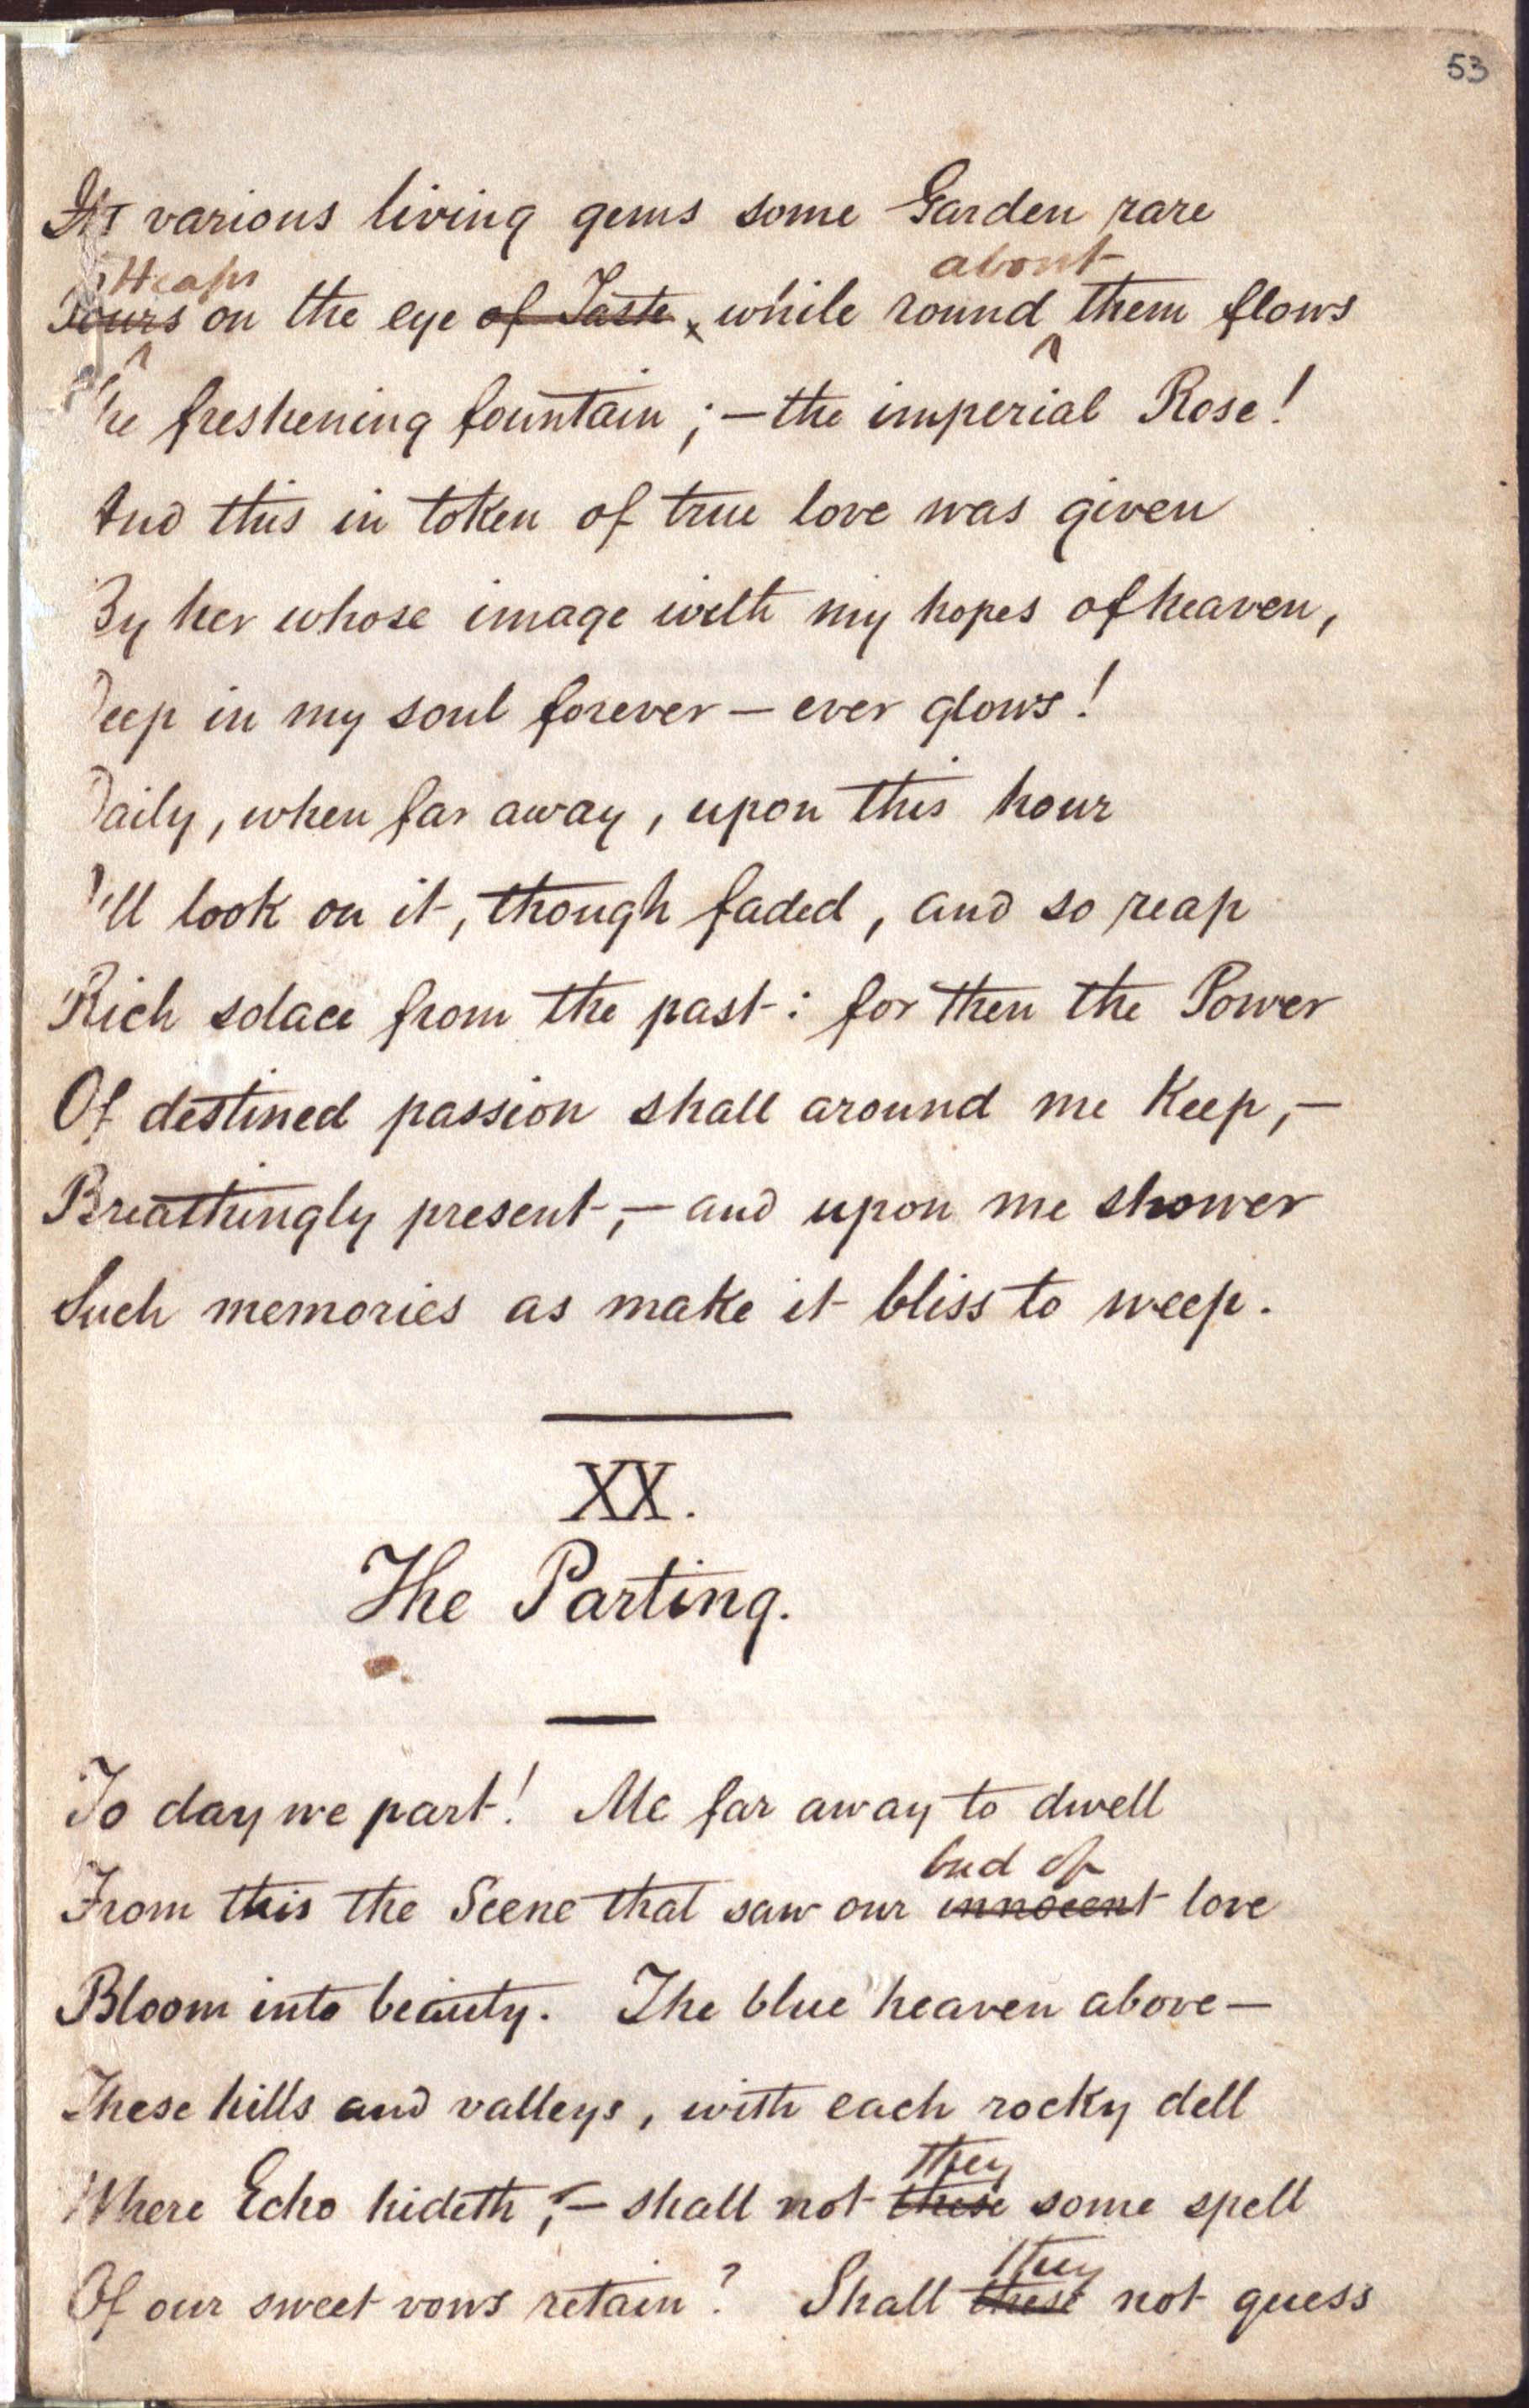 53
Its various living gems some Garden rare
Heaps about
Pours on the eye of Taste, while round them flows
The freshening fountain ;— the imperial Rose!
And this in token of true love was given
By her whose image with my hopes of heaven,
Deep in my soul forever — ever glows!
Daily, when far away, upon this hour
I'll look on it, though faded, and so reap
Rich solace from the past: for then the Power
Of destined passion shall around me keep,—
Breathingly present,— and upon me shower
Such memories as make it bliss to weep.
XX.
The Parting.
To day we part! Me far away to dwell
bud of
From this the Scene that saw our innocent love
Bloom into beauty. The blue heaven above—
These hills and valleys, with each rocky dell
they
Where Echo hideth,— shall not these some spell
they
Of our sweet vows retain? Shall these not guess